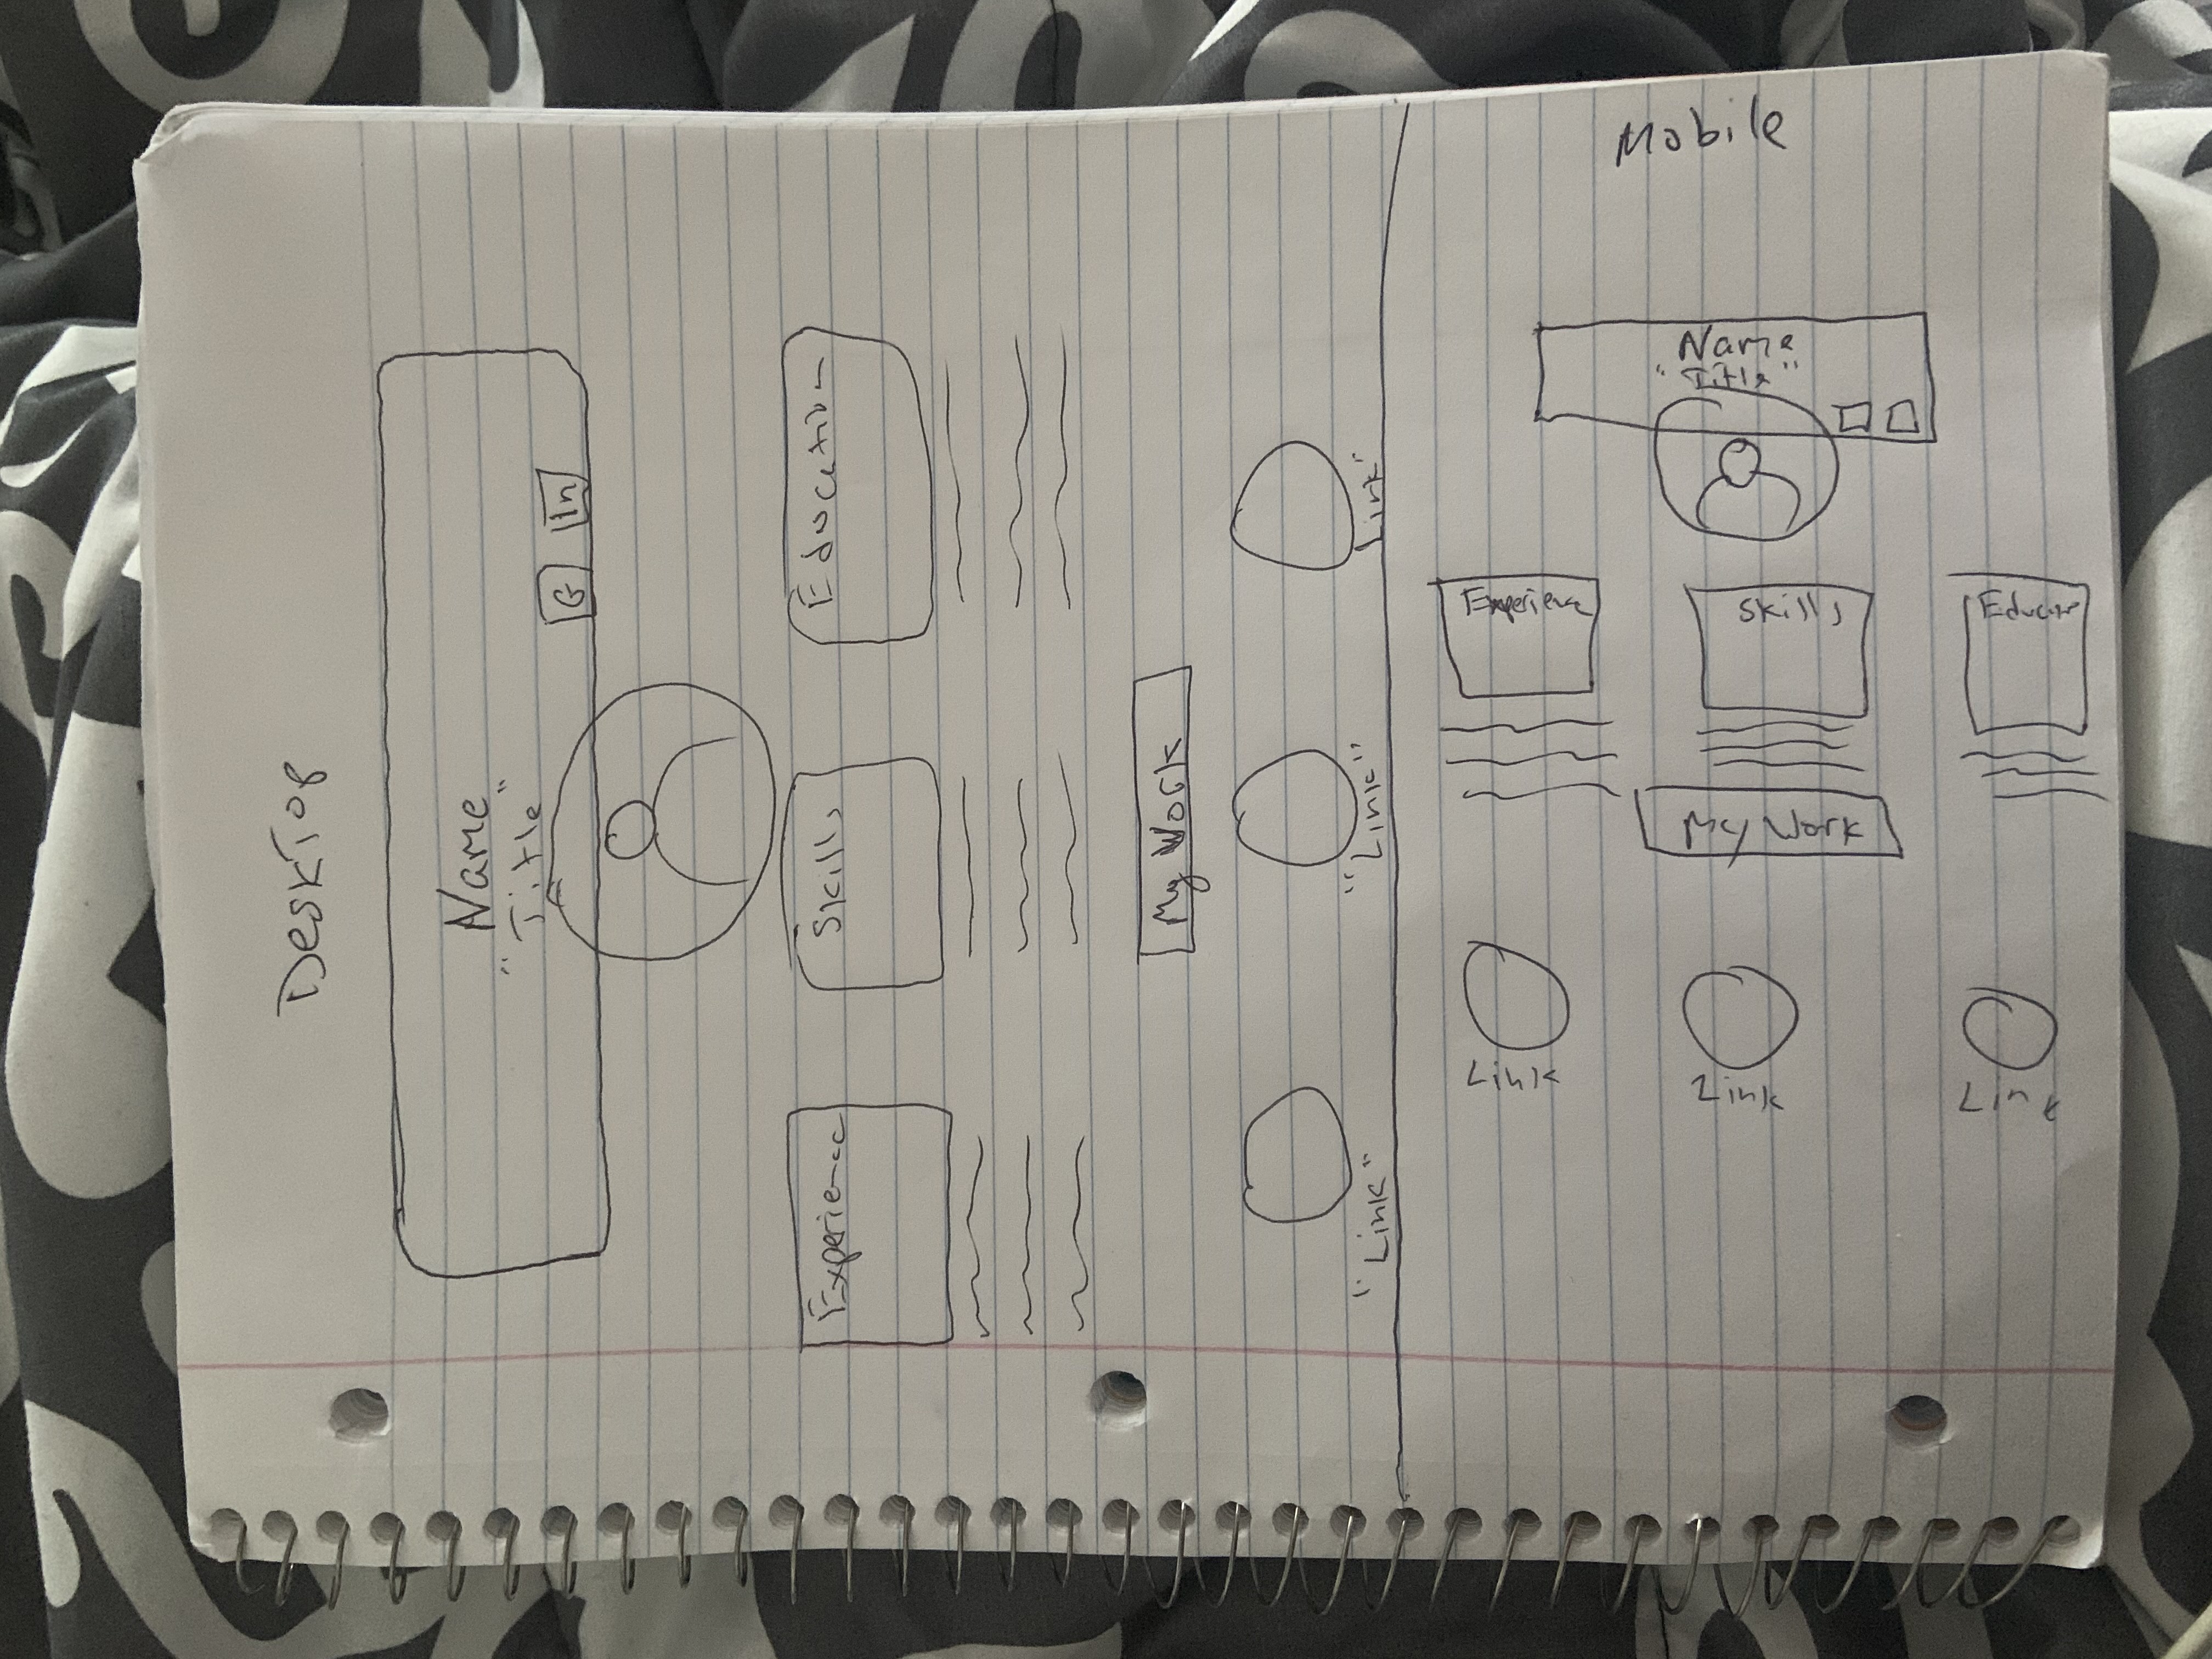 Desktop
Name
"Title"
G In
Experience Skills Education
My Work
"Link" "Link" Link"
Mobile
Name
"Title"
Experienc Skills
My Work
Link Link Link